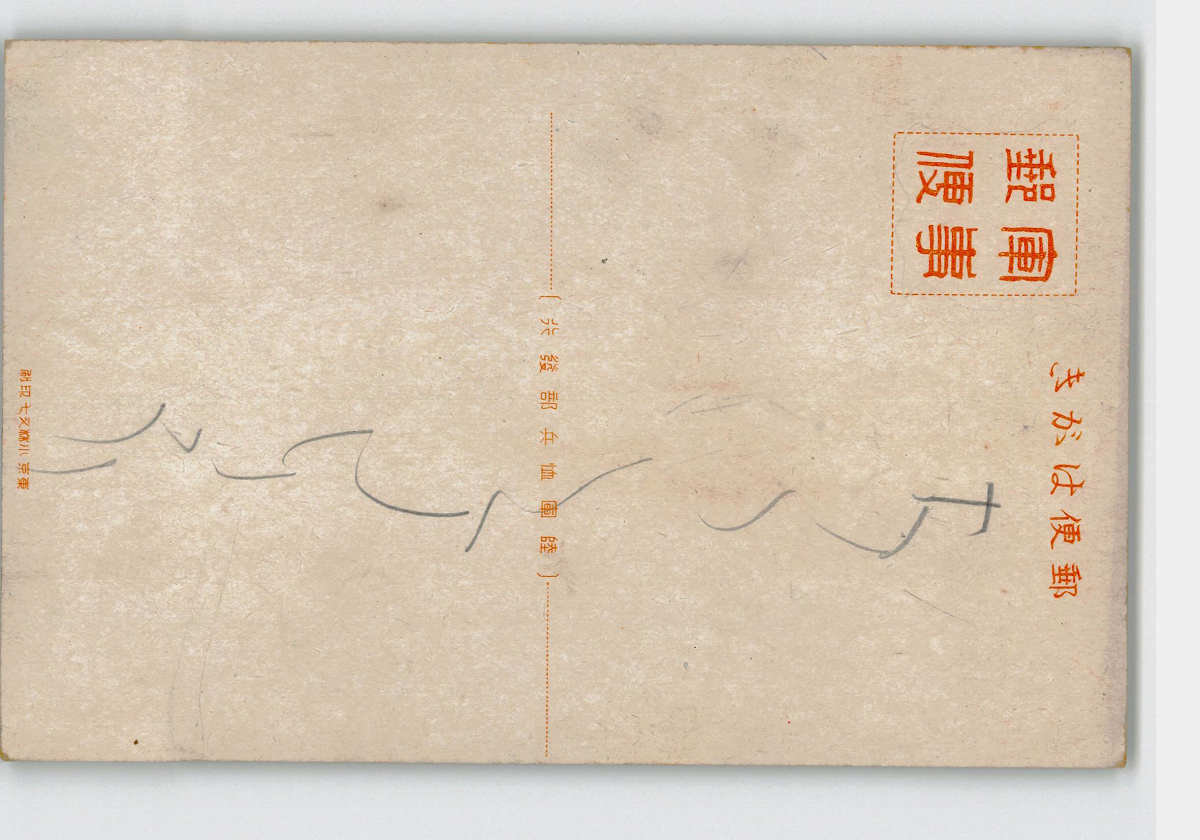 郵便はがき
軍事
郵便
(陸軍恤兵部發行)
東京小林又七印刷